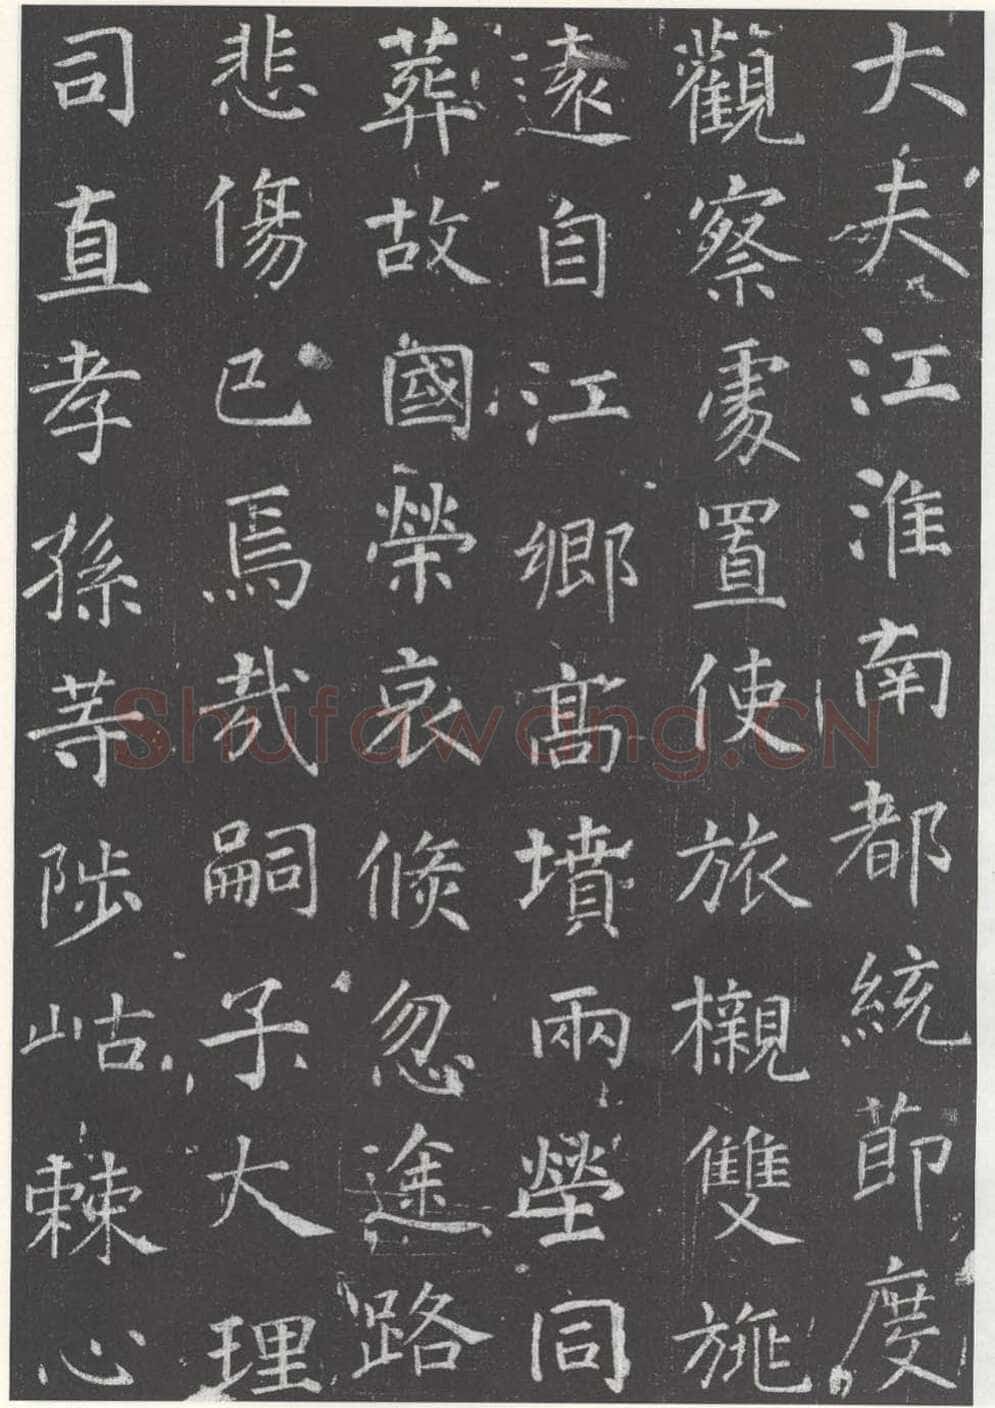 大夫江淮南都統節度
觀察處置使旅櫬雙旐
遠自江鄉高墳兩塋同
葬故國榮哀倏忽途路
悲傷已焉哉嗣子大理
司直孝孫等陟岵棘心
Shufawang.CN